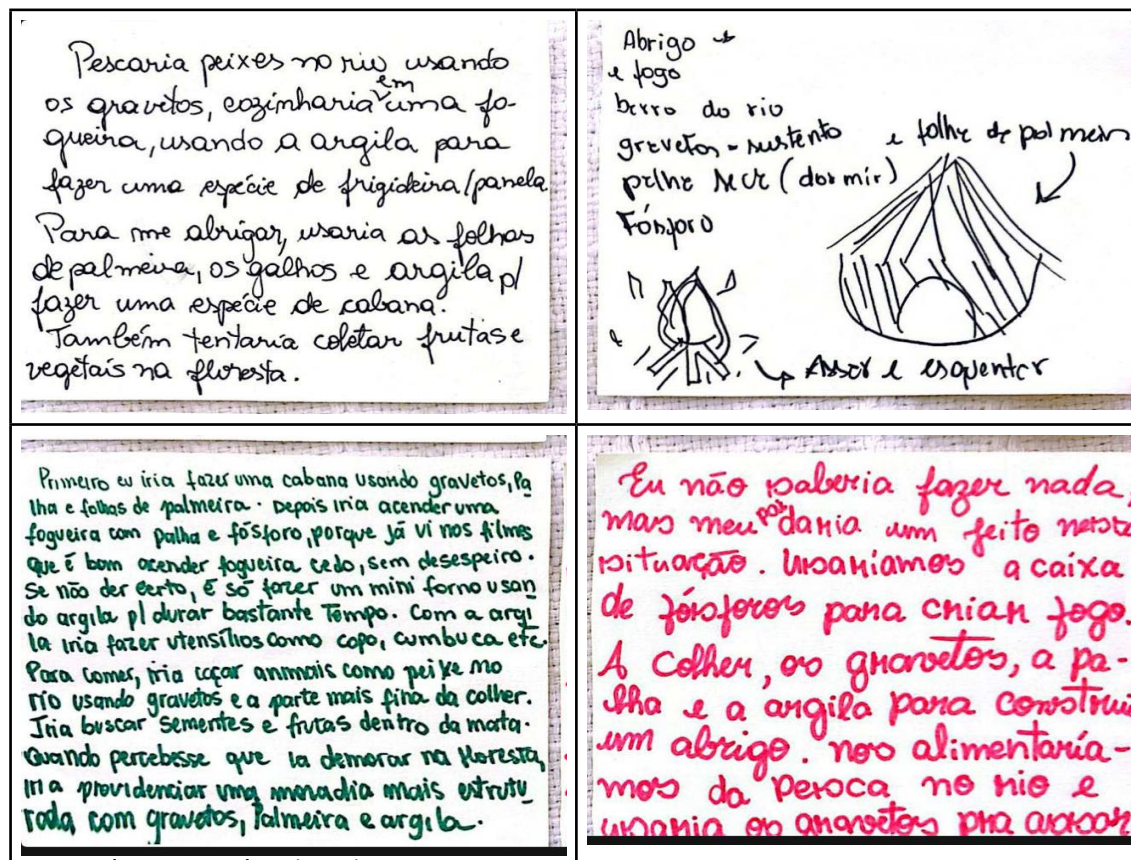 Pescaria peixes no rio usando
os gravetos, cozinharia em uma fo-
gueira, usando a argila para
fazer uma espécie de frigideira/panela
Para me abrigar, usaria as folhas
de palmeira, os galhos e argila p/
fazer uma espécie de cabana.
Também tentaria coletar frutas e
vegetais na floresta.
Abrigo
e fogo
barro do rio
gravetos - sustento
palha seca (dormir)
Fósforo
e folha de palmeira
Assar e esquentar
Primeiro eu iria fazer uma cabana usando gravetos, Pa
lha e folhas de palmeira. Depois iria acender uma
fogueira com palha e fósforo, porque já vi nos filmes
que é bom acender fogueira cedo, sem desespeiro.
Se não der certo, é só fazer um mini forno usan
do argila p/ durar bastante Tempo. Com a argi
la iria fazer utensílios como copo, cumbuca etc.
Para comer, iria caçar animais como peixe no
rio usando gravetos e a parte mais fina da colher.
Iria buscar sementes e frutas dentro da mata.
Quando percebesse que ia demorar na floresta,
iria providenciar uma moradia mais estrutu
rada com gravetos, Palmeira e argila.
Eu não saberia fazer nada,
mas meu pai daria um jeito nesta
situação. Usaríamos a caixa
de fósforos para criar fogo.
A colher, os gravetos, a pa-
lha e a argila para construir
um abrigo. nos alimentaría-
mos da Pesca no rio e
usaria os gravetos pra assar